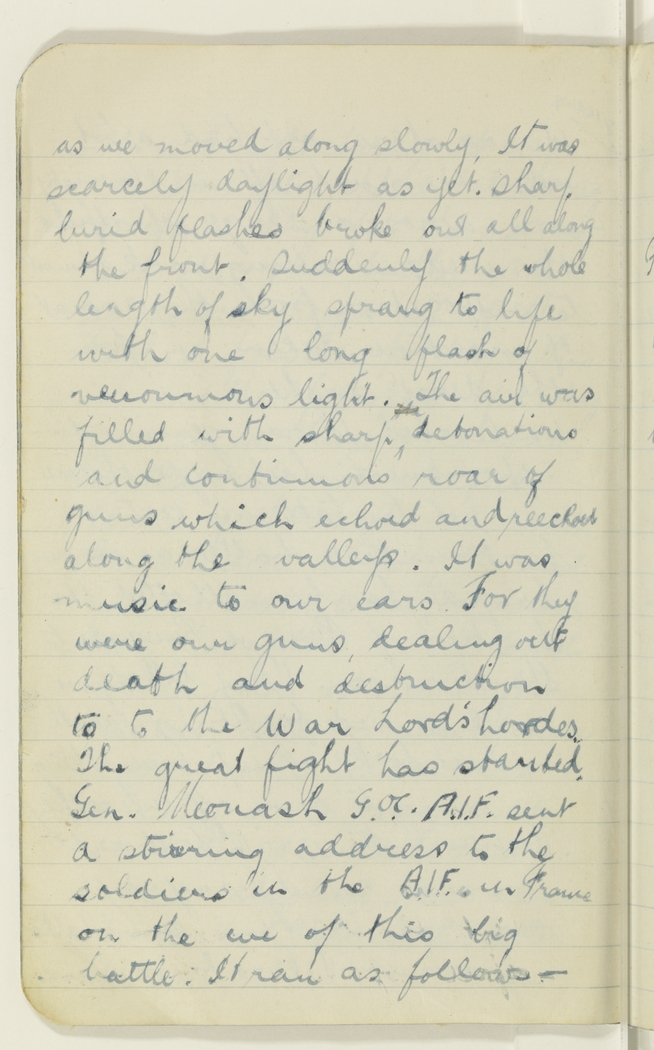 as we moved along slowly, It was
scarcely daylight as yet. Sharp
lurid flashes broke out all along
the front. Suddenly the whole
length of sky sprang to life
with one long flash of
venoumous light. The air was
filled with sharp, detonations
and continuous roar of
guns which echoed and reechoed
along the valleys. It was
music to our ears. For they
were our guns, dealing out
death and destruction
to to the War Lord's hordes.
The great fight has started.
Gen. Monash G.O.C. A.I.F. sent
a stirring address to the
soldiers in the A.I.F. in France
on the eve of this big
battle. It ran as follows —